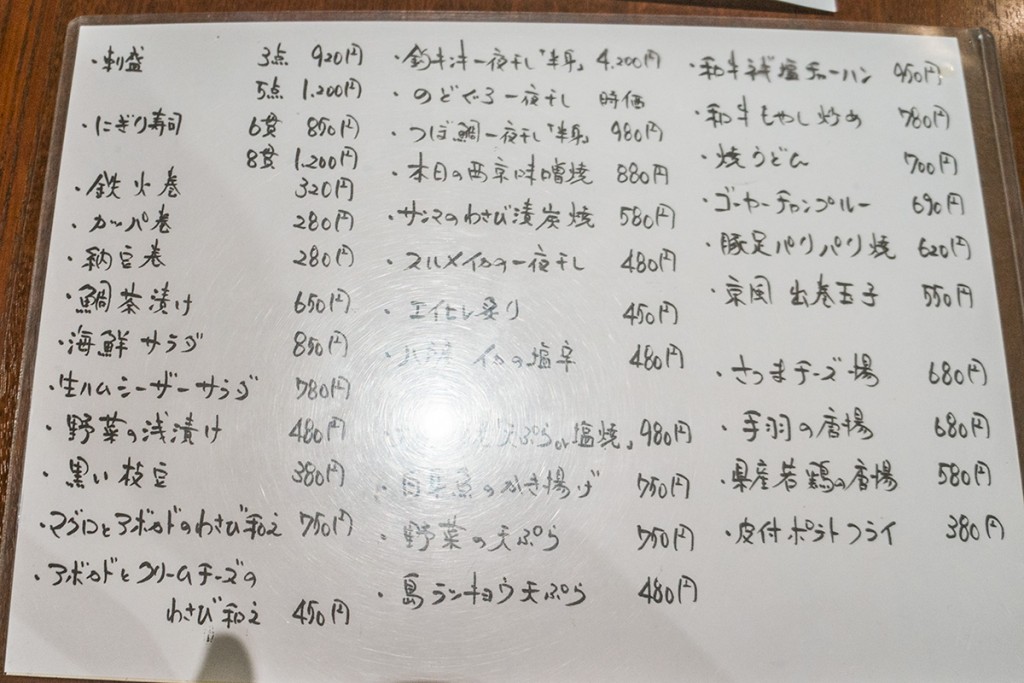 ・刺盛 3点 920円
5点 1.200円
・にぎり寿司 6貫 850円
8貫 1.200円
・鉄火巻 320円
・カッパ巻 280円
・納豆巻 280円
・鯛茶漬け 650円
・海鮮サラダ 850円
・生ハムシーザーサラダ 780円
・野菜の浅漬け 480円
・黒い枝豆 380円
・マグロとアボカドのわさび和え 750円
・アボカドとクリームチーズの
わさび和え 450円
・釣キンキ一夜干し「半身」 4.200円
・のどぐろ一夜干し 時価
・つぼ鯛一夜干し「半身」 980円
・本日の西京味噌焼 880円
・サンマのわさび漬炭焼 580円
・スルメイカの一夜干し 480円
・エイヒレ炙り 450円
・イカの塩辛 480円
天ぷらor塩焼」 980円
・白黒魚のかき揚げ 750円
・野菜の天ぷら 750円
・島ランキョウ天ぷら 480円
・和牛塩チャーハン 950円
・和牛もやし炒め 780円
・焼うどん 700円
・ゴーヤーチャンプルー 690円
・豚足パリパリ焼 620円
・京風出巻玉子 550円
・さつまチーズ揚 680円
・手羽の唐揚 680円
・県産若鶏の唐揚 580円
・皮付ポテトフライ 380円